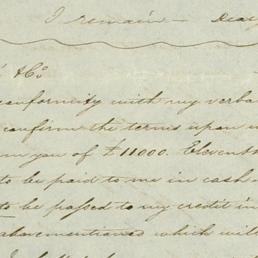 I remain — Dear
& Co
conformity with my verba
confirm the terms upon w
you of £11000. Eleven th
to be paid to me in cash
to be passed to my credit in
abovementioned which wil